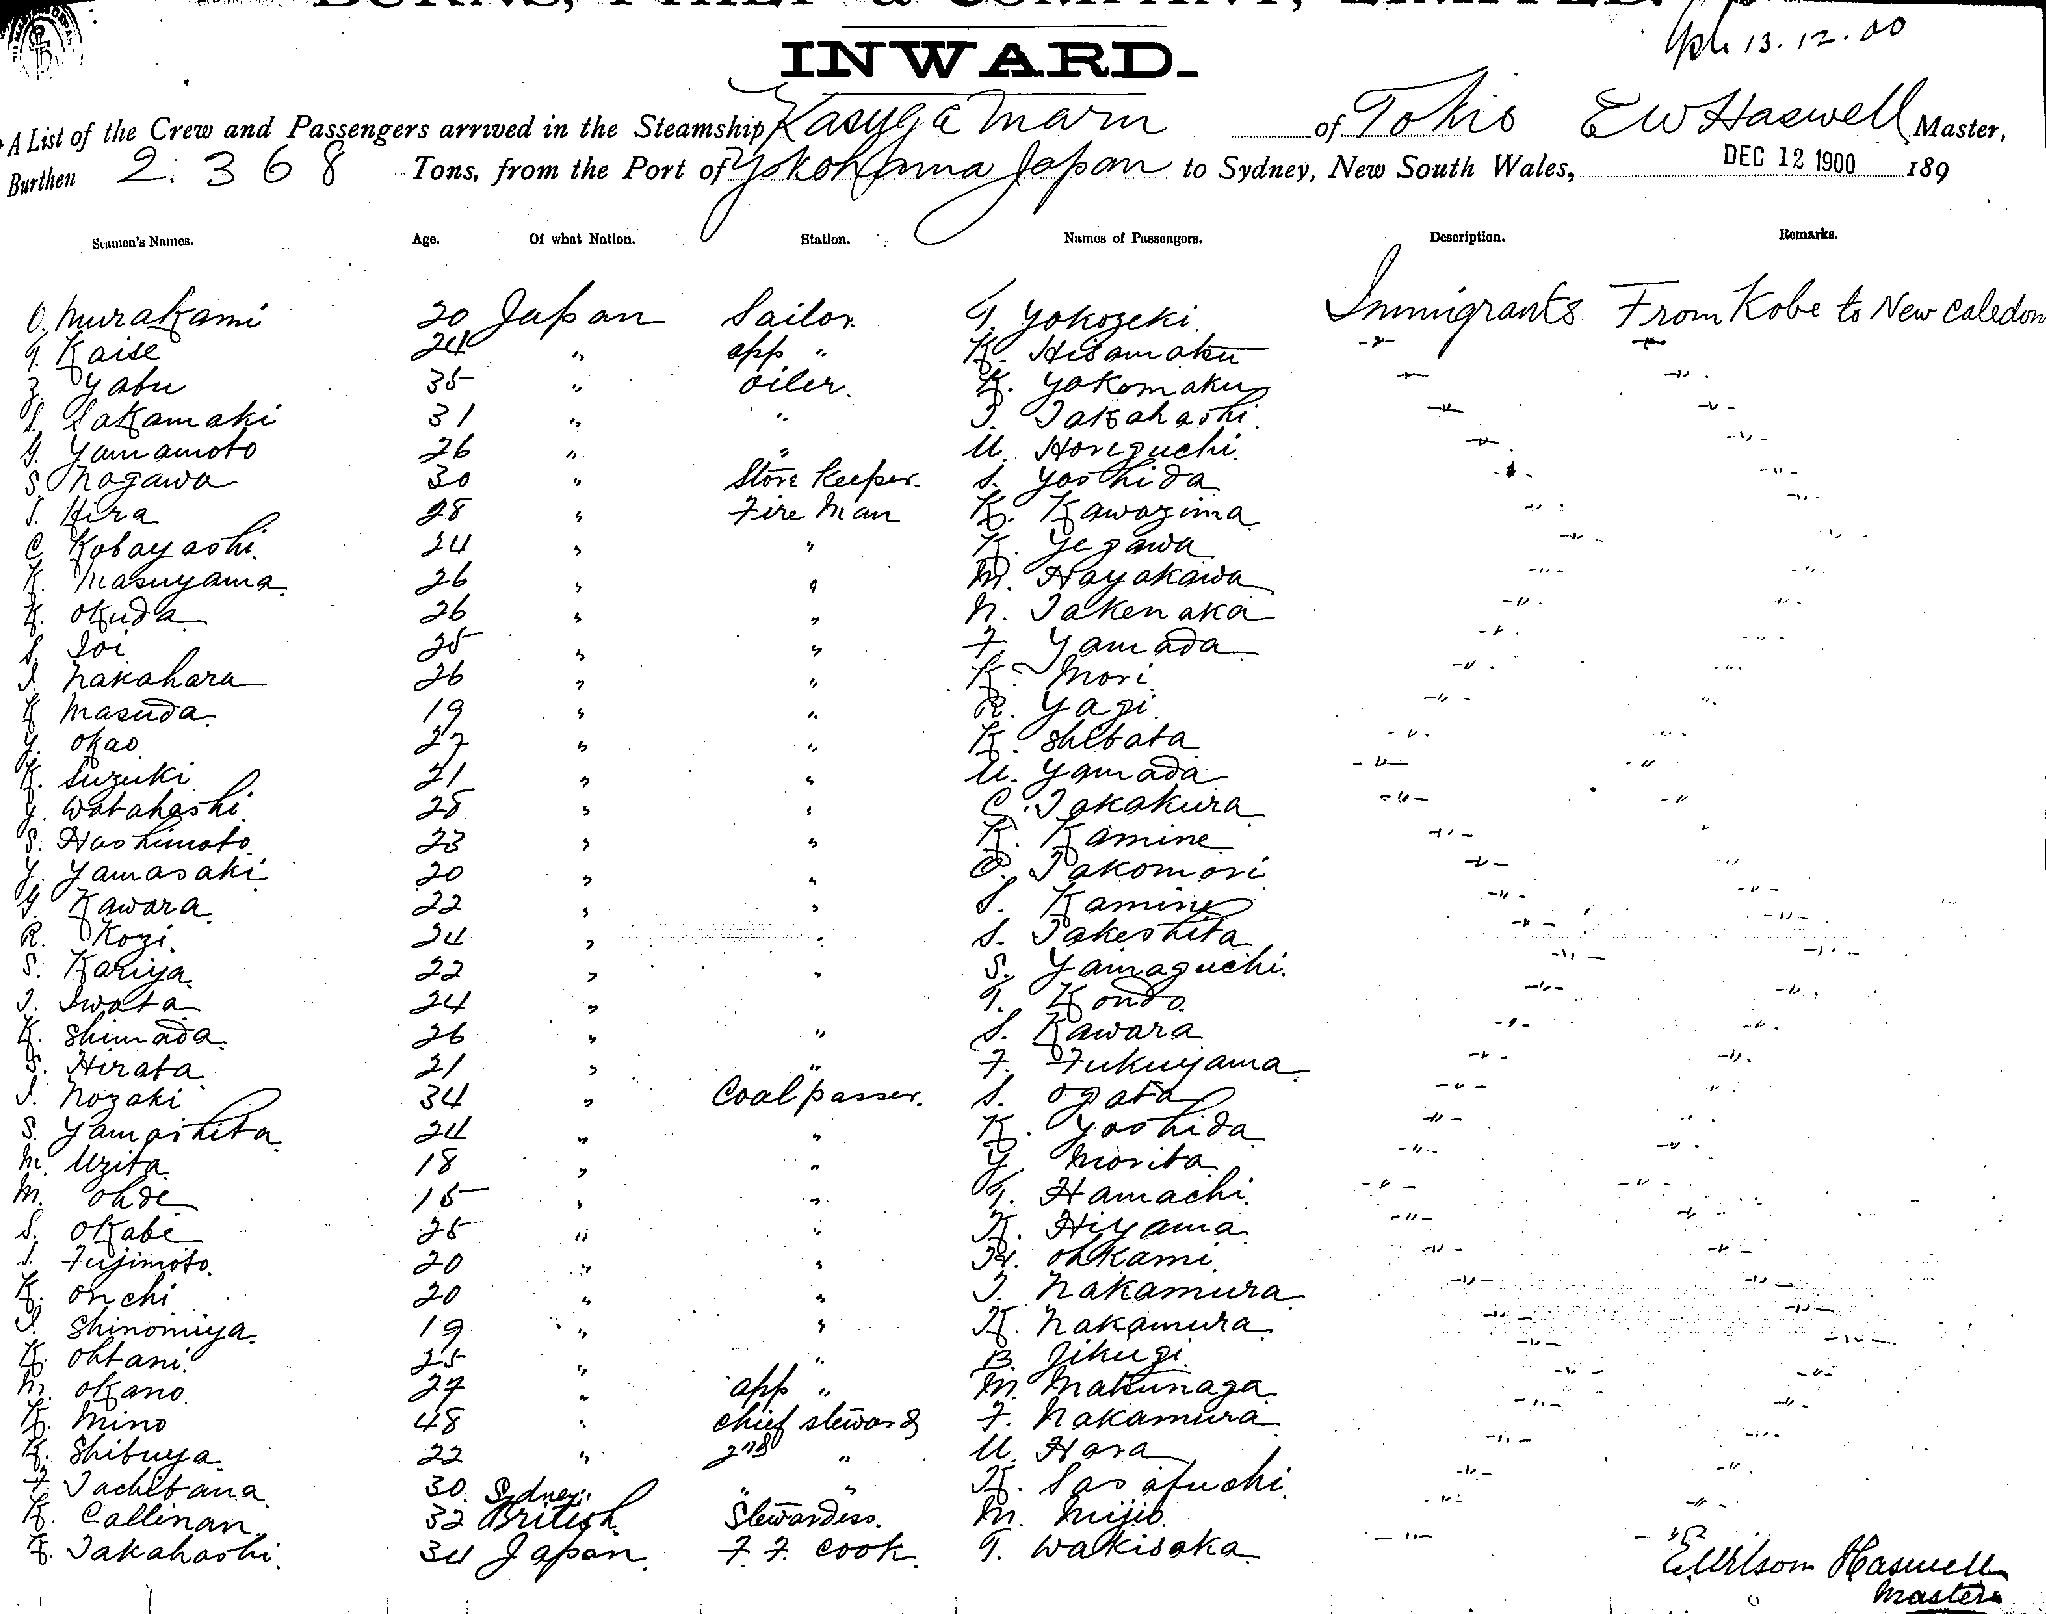 BURNS, PHILP & COMPANY, LIMITED.
13.12.00
INWARD.
A List of the Crew and Passengers arrived in the Steamship Kasuga Maru of Tokio E W Haswell Master,
Burthen 2.368 Tons, from the Port of Yokohama Japan to Sydney, New South Wales, DEC 12 1900 189
Seamen's Names. Age. Of what Nation. Station. Names of Passengers. Description. Remarks.
O. Murakami 20 Japan Sailor. T. Yokozeki. Immigrants From Kobe to New Caledon
T. Kaise 24 " app " K. Hisamatsu -"- -"-
Z. Yabu 35 " oiler. K. Yokomaku -"- -"-
S. Sakamaki 31 " " T. Takahashi. -"- -"-
Y. Yamamoto 26 " " U. Horiguchi. -"- -"-
S. Nogawa 30 " Store Keeper. S. Yoshida -"- -"-
S. Hira 28 " Fire Man K. Kawazima -"- -"-
C. Kobayashi. 24 " " K. Yegawa -"- -"-
K. Masuyama. 26 " " M. Hayakawa -"- -"-
K. Okuda 26 " " N. Takenaka -"- -"-
S. Ioi 25 " " F. Yamada -"- -"-
I. Nakahara 26 " " K. Mori. -"- -"-
K. Masuda. 19 " " R. Yagi. -"- "
Y. Okao 27 " " K. Shibata -"- -"-
K. Suzuki 21 " " U. Yamada -"- -"
Y. Watahashi. 25 " " C. Takakura -"- -"
S. Hashimoto 23 " " K. Kamine -"- "
Y. Yamasaki 20 " " C. Takomori -"- -"
Y. Kawara. 22 " " S. Kamine -"- -"-
R. Kozi. 24 " " S. Takeshita -"- -"-
S. Kariya. 22 " " S. Yamaguchi. -"- -"-
I. Iwata 24 " T. Kondo. -"- -"-
K. Shimada. 26 " " S. Kawara -"- -"-
S. Hirata 21 " " F. Fukuyama. -"- -"-
I. Nozaki 34 " Coal passer. S. Ogata -"- "
S. Yamashita. 24 " " K. Yoshida -"- "
M. Uzita 18 " " Y. Morita -"- -"-
M. Ohde 15 " " T. Hamachi. -"- -"-
S. Okabe 25 " " K. Hiyama -"- -"-
S. Fujimoto. 20 " " H. Ohkami. -"- -"-
K. Onchi 20 " " I. Nakamura -"- -"-
I. Shinomiya. 19 " " K. Nakamura -"- -"-
K. Ohtani. 25 " " B. Jikugi. -"- -"-
M. Okano. 27 " app " M. Matsunaga -"- -"-
K. Mino 48 " chief steward F. Nakamura -"- -"-
K. Shibuya. 22 " 2nd " U. Hara -"- -"-
F. Tachibana. 30 Sydney " " K. Sasabuchi. -"- -"-
K. Callinan 32 British. Stewardess. M. Mijio. -"- -"-
F. Takahashi. 34 Japan. F. F. Cook. T. Wakisaka -"- -"-
E. Wilson Haswell
Master